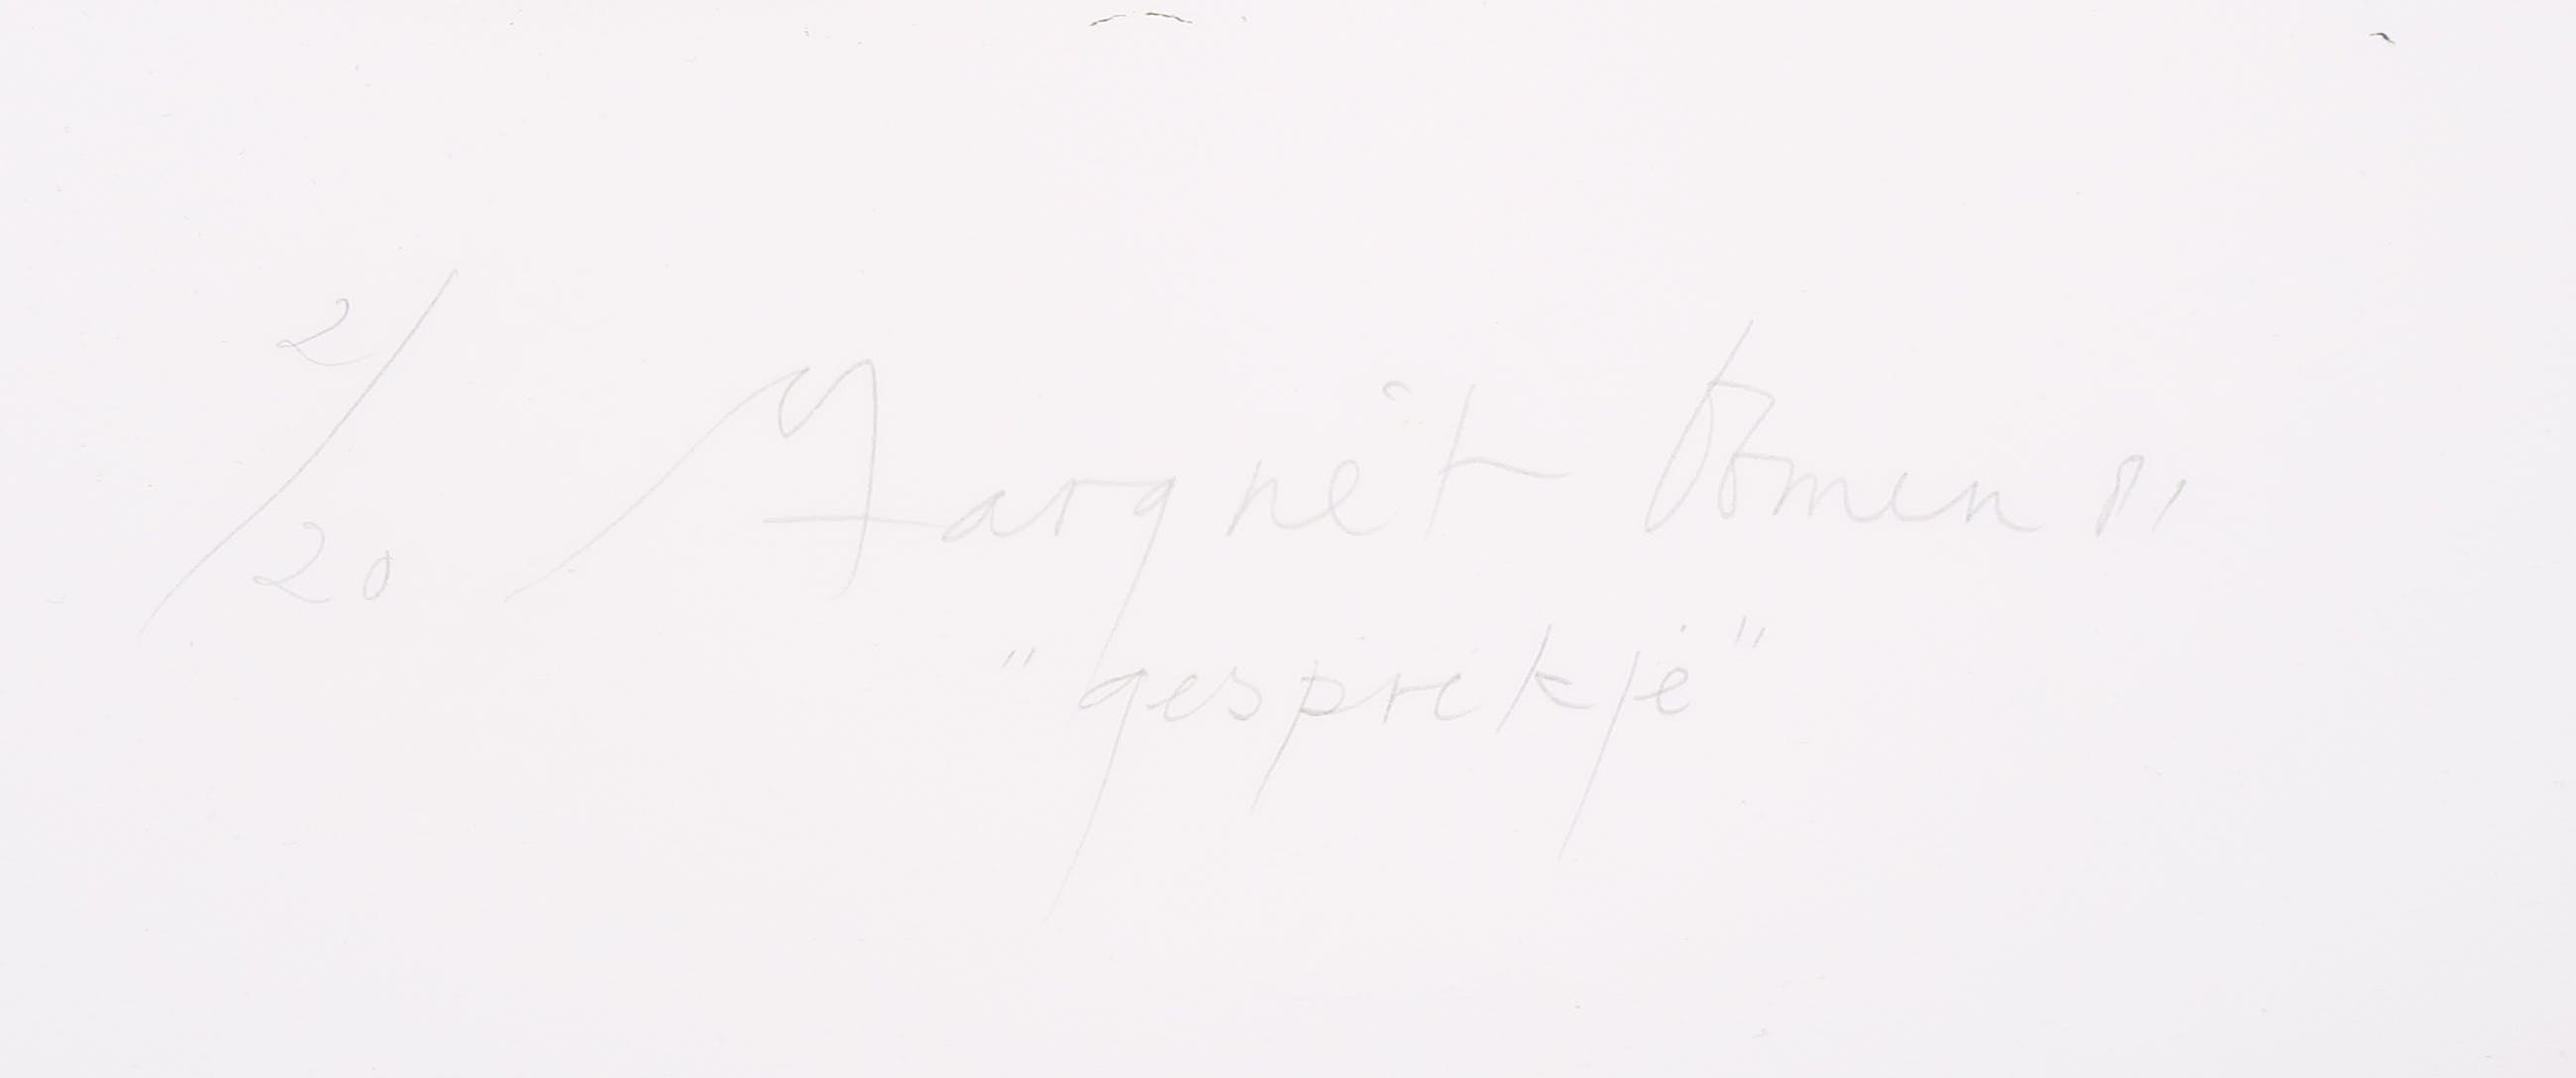 2/20 Margriet Bomen 81
"gesprekje"